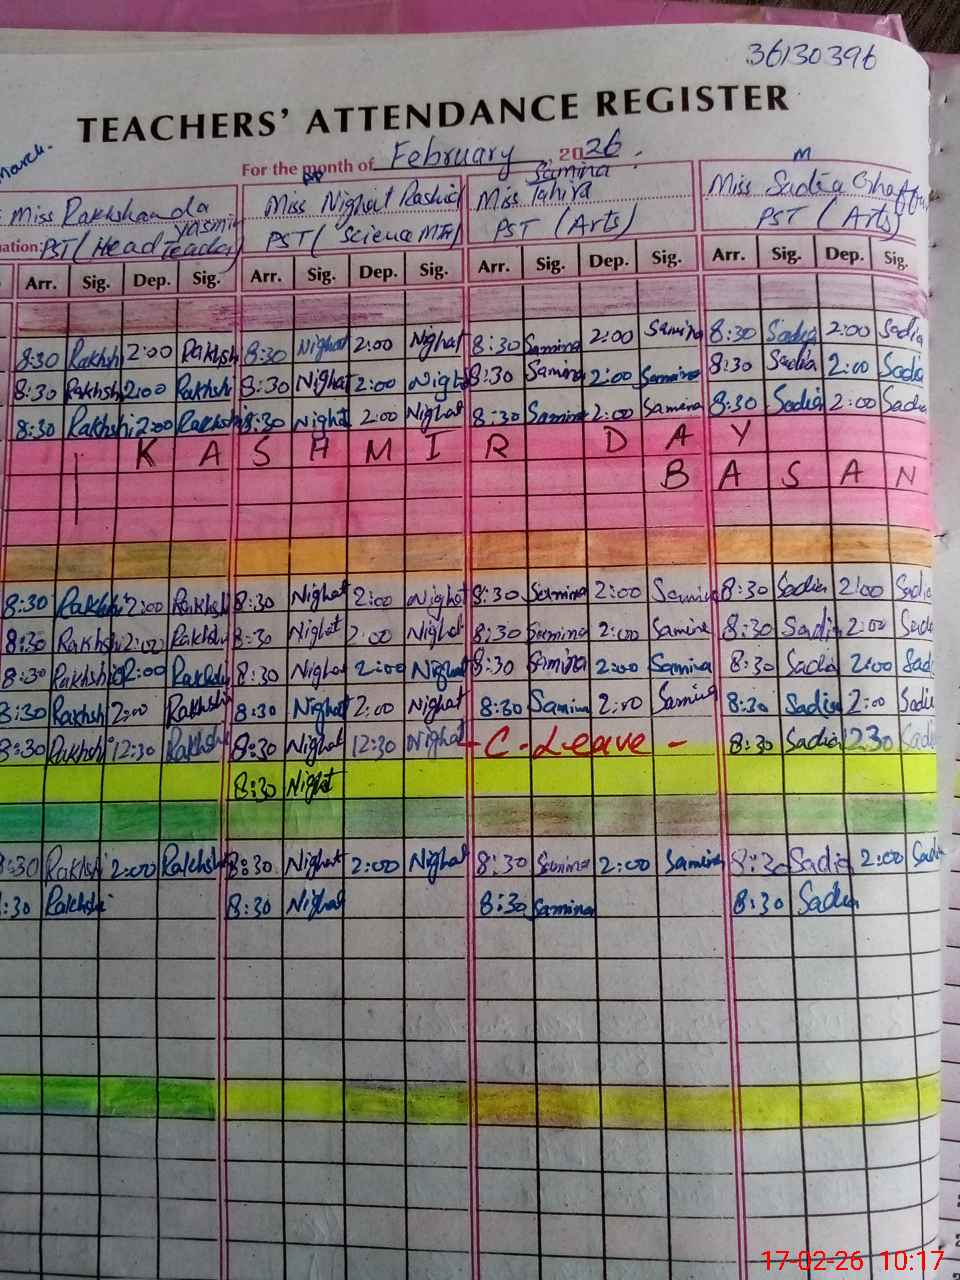 36130396
TEACHERS' ATTENDANCE REGISTER
March.
For the month of February, 2026.
Miss Rakhshanda Yasmin Miss Nighat Rashid Miss Samina Tahira M Miss Sadia Ghaffar
nation: PST (Head Teacher) PST (Science Mtr) PST (Arts) PST (Arts)
Arr. Sig. Dep. Sig. Arr. Sig. Dep. Sig. Arr. Sig. Dep. Sig. Arr. Sig. Dep. Sig.
8:30 Rakhshi 2:00 Rakhshi 8:30 Nighat 2:00 Nighat 8:30 Samina 2:00 Samina 8:30 Sadia 2:00 Sadia
8:30 Rakhshi 2:00 Rakhshi 8:30 Nighat 2:00 Nighat 8:30 Samina 2:00 Samina 8:30 Sadia 2:00 Sadia
8:30 Rakhshi 2:00 Rakhshi 8:30 Nighat 2:00 Nighat 8:30 Samina 2:00 Samina 8:30 Sadia 2:00 Sadia
K A S H M I R D A Y
B A S A N
8:30 Rakhshi 2:00 Rakhshi 8:30 Nighat 2:00 Nighat 8:30 Samina 2:00 Samina 8:30 Sadia 2:00 Sadia
8:30 Rakhshi 2:00 Rakhshi 8:30 Nighat 2:00 Nighat 8:30 Samina 2:00 Samina 8:30 Sadia 2:00 Sadia
8:30 Rakhshi 2:00 Rakhshi 8:30 Nighat 2:00 Nighat 8:30 Samina 2:00 Samina 8:30 Sadia 2:00 Sadi
8:30 Rakhshi 2:00 Rakhshi 8:30 Nighat 2:00 Nighat 8:30 Samina 2:00 Samina 8:30 Sadia 2:00 Sadia
8:30 Rakhshi 12:30 Rakhshi 8:30 Nighat 12:30 Nighat - C-Leave - 8:30 Sadia 1230 Sadia
8:30 Nighat
8:30 Rakhshi 2:00 Rakhshi 8:30 Nighat 2:00 Nighat 8:30 Samina 2:00 Samina 8:30 Sadia 2:00 Sadia
:30 Rakhshi 8:30 Nighat 8:30 Samina 8:30 Sadia
17-02-26 10:17